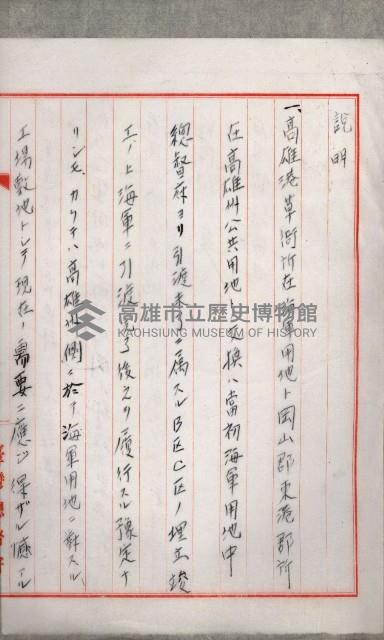 說明
一、高雄港草衙所在海軍用地ト岡山郡東港郡所
在高雄州公共用地ト交換ハ當初海軍用地中
總督府ヨリ引渡未了ニ属スルB区C区ノ埋立竣
工ノ上海軍ニ引渡完了後之ヲ履行スル豫定ナ
リシモ、カクテハ高雄州側ニ於テ海軍用地ニ對スル
工場敷地トシテ現在ノ需要ニ應ジ得ザル憾アル
高雄市立歷史博物館
KAOHSIUNG MUSEUM OF HISTORY